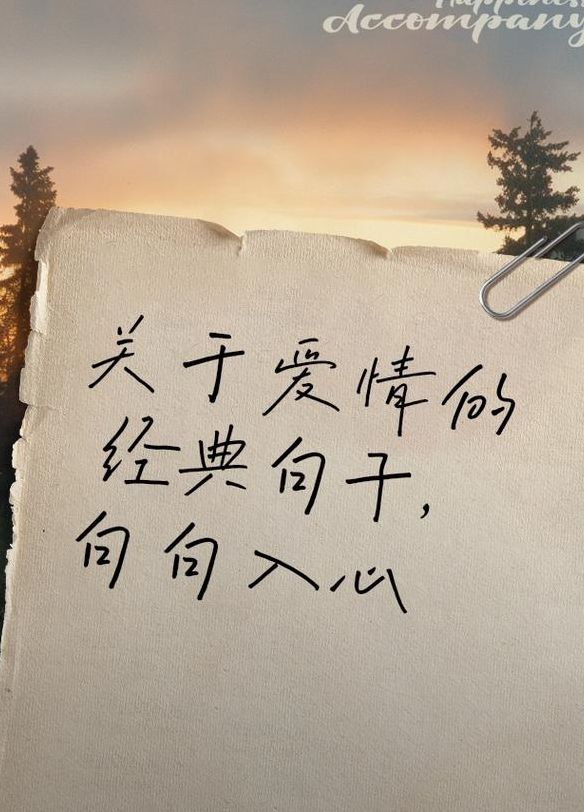 Happiness
Accompany
关于爱情的
经典句子，
句句入心